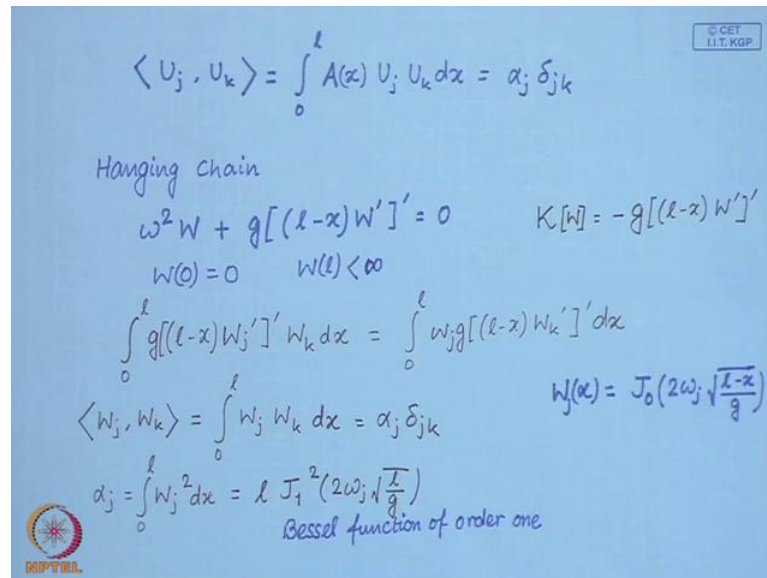 © CET
I.I.T. KGP
⟨U_j , U_k⟩ = ∫_0^l A(x) U_j U_k dx = α_j δ_jk
Hanging chain
ω² W + g[(l-x)W']' = 0    K[W] = -g[(l-x)W']'
W(0) = 0    W(l) < ∞
∫_0^l g[(l-x)W_j']' W_k dx = ∫_0^l W_j g[(l-x)W_k']' dx
W_j(x) = J_0(2ω_j √((l-x)/g))
⟨W_j, W_k⟩ = ∫_0^l W_j W_k dx = α_j δ_jk
α_j = ∫_0^l W_j² dx = l J_1²(2ω_j √(l/g))
Bessel function of order one
NPTEL